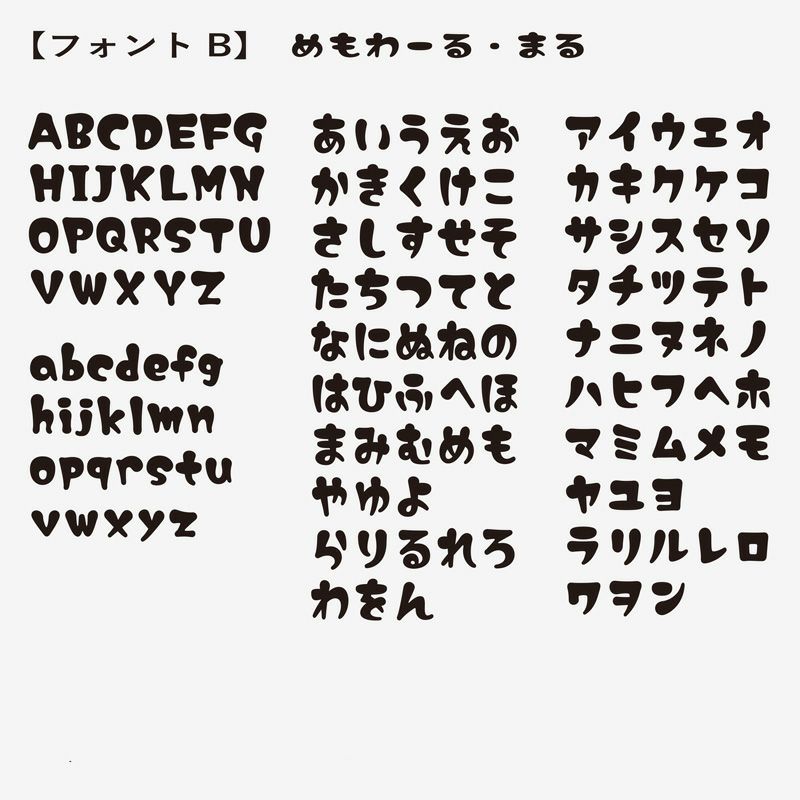 【フォント B】 めもわーる・まる
ABCDEFG
HIJKLMN
OPQRSTU
VWXYZ
abcdefg
hijklmn
opqrstu
vwxyz
あいうえお
かきくけこ
さしすせそ
たちつてと
なにぬねの
はひふへほ
まみむめも
やゆよ
らりるれろ
わをん
アイウエオ
カキクケコ
サシスセソ
タチツテト
ナニヌネノ
ハヒフヘホ
マミムメモ
ヤユヨ
ラリルレロ
ワヲン